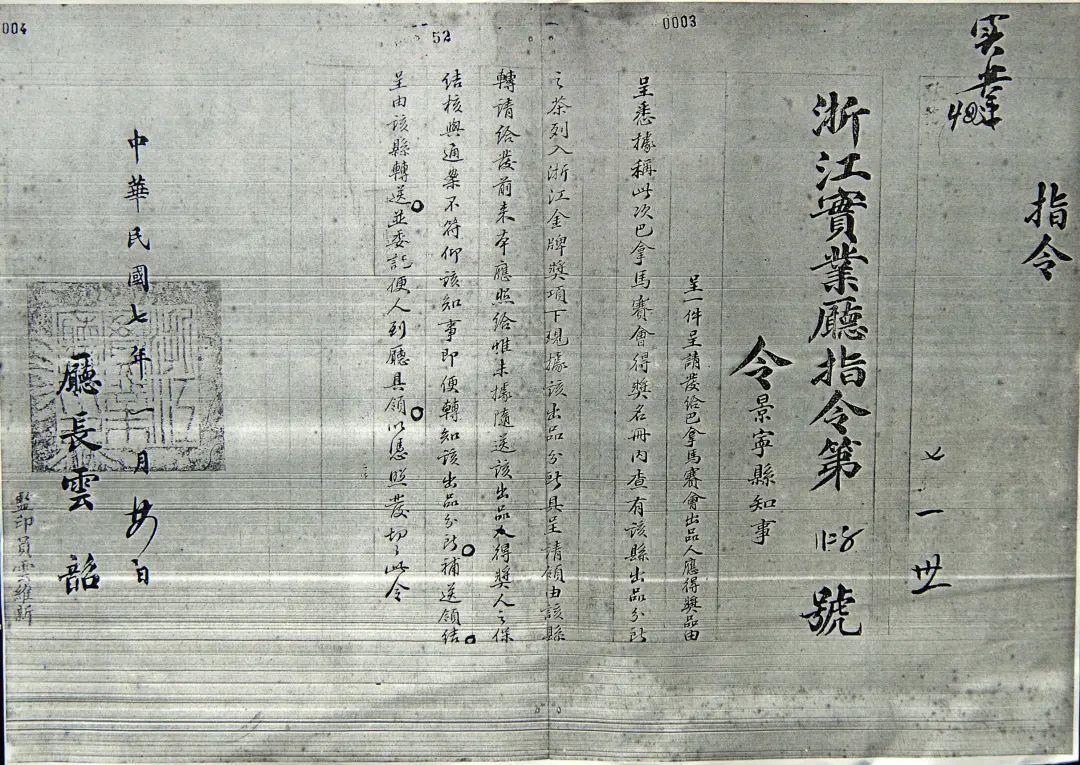 0003
實業
指令
七 一 卅
浙江實業廳指令第 號
令景寧縣知事
呈一件呈請發給巴拿馬賽會出品人應得獎品由
呈悉據稱此次巴拿馬賽會得獎名冊內查有該縣出品分所
之茶列入浙江金牌獎項下現據該出品分所具呈請領由該縣
轉請給發前來本應照給惟未據隨送該出品人得獎人之保
結核與通案不符仰該知事即便轉知該出品分所補送領結
呈由該縣轉送並委託便人到廳具領以憑照發切切此令
52
004
中華民國七年一月 日
廳長雲 韶
監印員雲維新